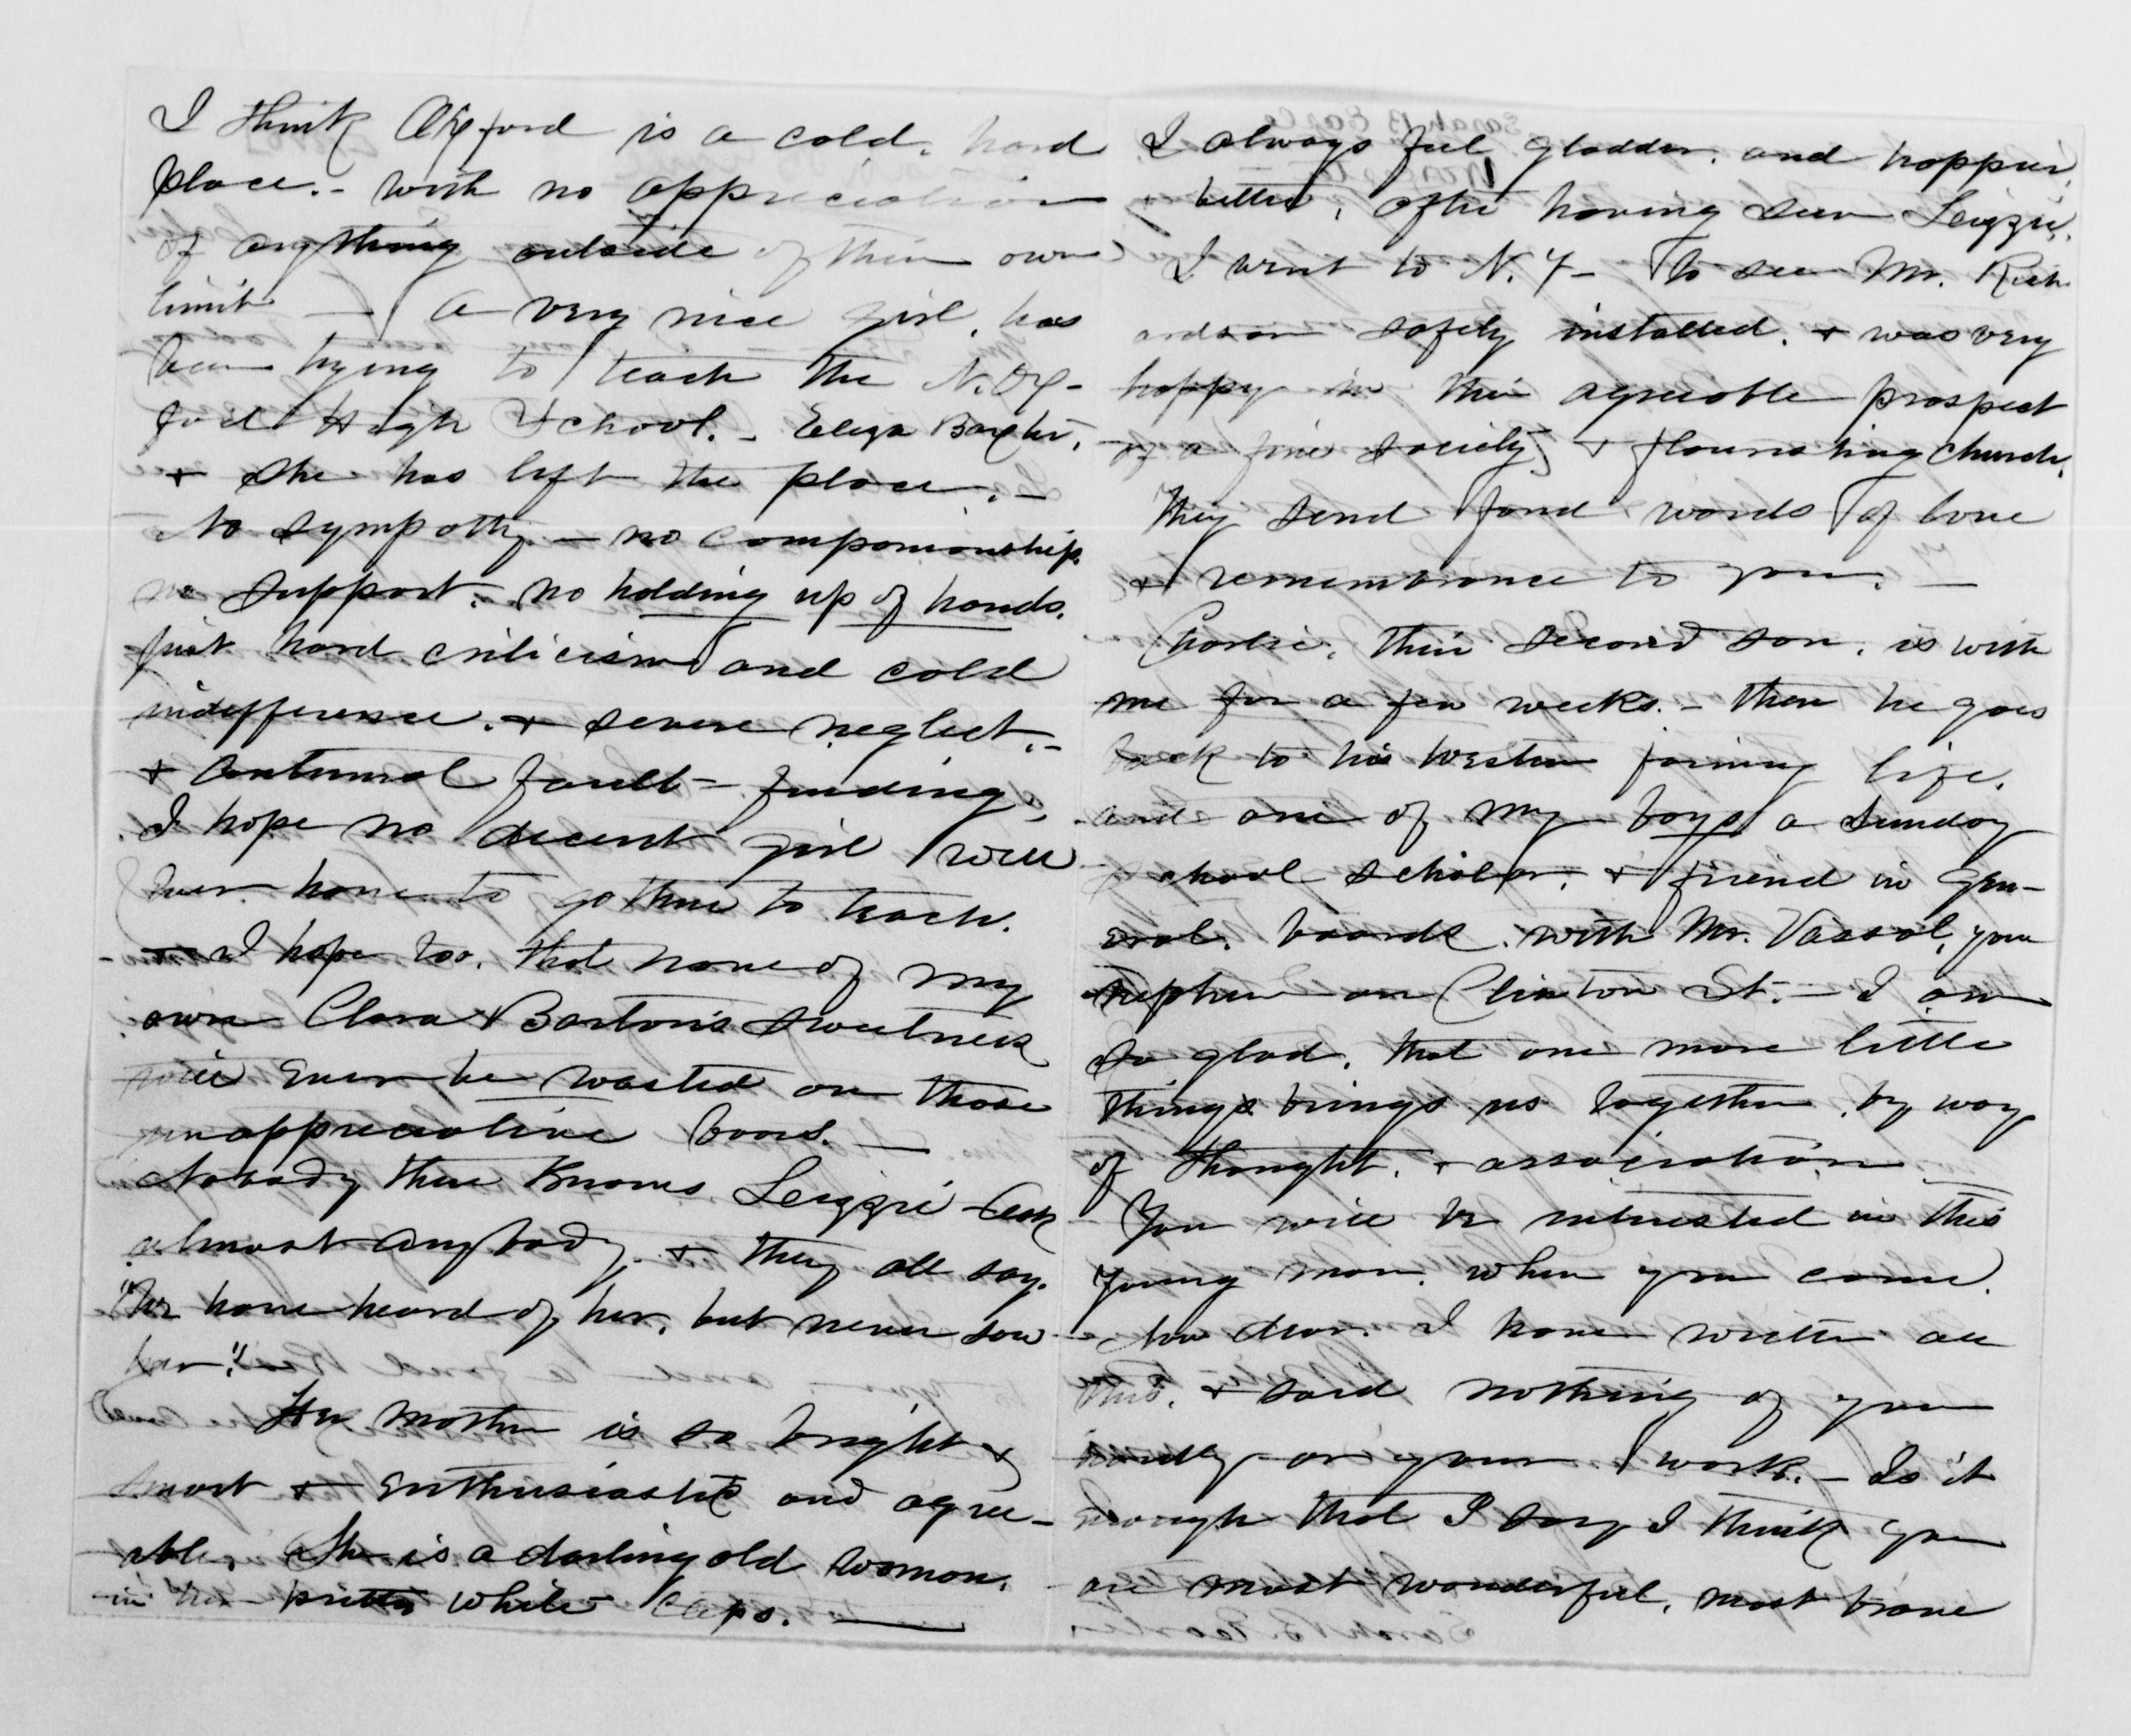 I think Oxford is a cold, hard
place. - with no appreciation
of anything outside of their own
limit - A very nice girl, has
been trying to teach the N. Ox-
ford High School. - Eliza Baxter,
+ she has left the place. -
No sympathy. - no companionship.
no support. - no holding up of hands.
just hard criticism and cold
indifference. + severe neglect. -
+ continual fault - finding,
I hope no decent girl will
ever have to go there to teach.
- I hope too. that none of my
own Clara Barton's sweetness
will ever be wasted on those
unappreciative boors. -
Nobody there knows Leizzie - Ask
almost anybody. + they all say.
"We have heard of her, but never saw
her." -
Her mother is so bright +
smart + enthusiastic and agree-
able, She is a darling old woman.
in her pretty white caps. -
I always feel gladder, and happier,
+ better, after having seen Leizzie.
I went to N. Y - to see Mr. Rich-
ardson safely installed. + was very
happy in their agreeable prospect
of a fine society, + flourishing church.
They send fond words of love
+ remembrance to you. -
Charlie, their second son, is with
me for a few weeks. - then he goes
back to his western farming life.
and one of my boys, a Sunday
School scholar, + friend in gen-
eral. boards with Mr. Vassal, your
nephew on Clinton St. - I am
so glad, that one more little
things brings us together, by way
of thought, + association.
You will be interested in this
young man, when you come.
Now dear. I have written all
this, + said nothing of you
or your work. - Is it
enough that I say I think you
are most wonderful, most brave
Sarah B. Earle